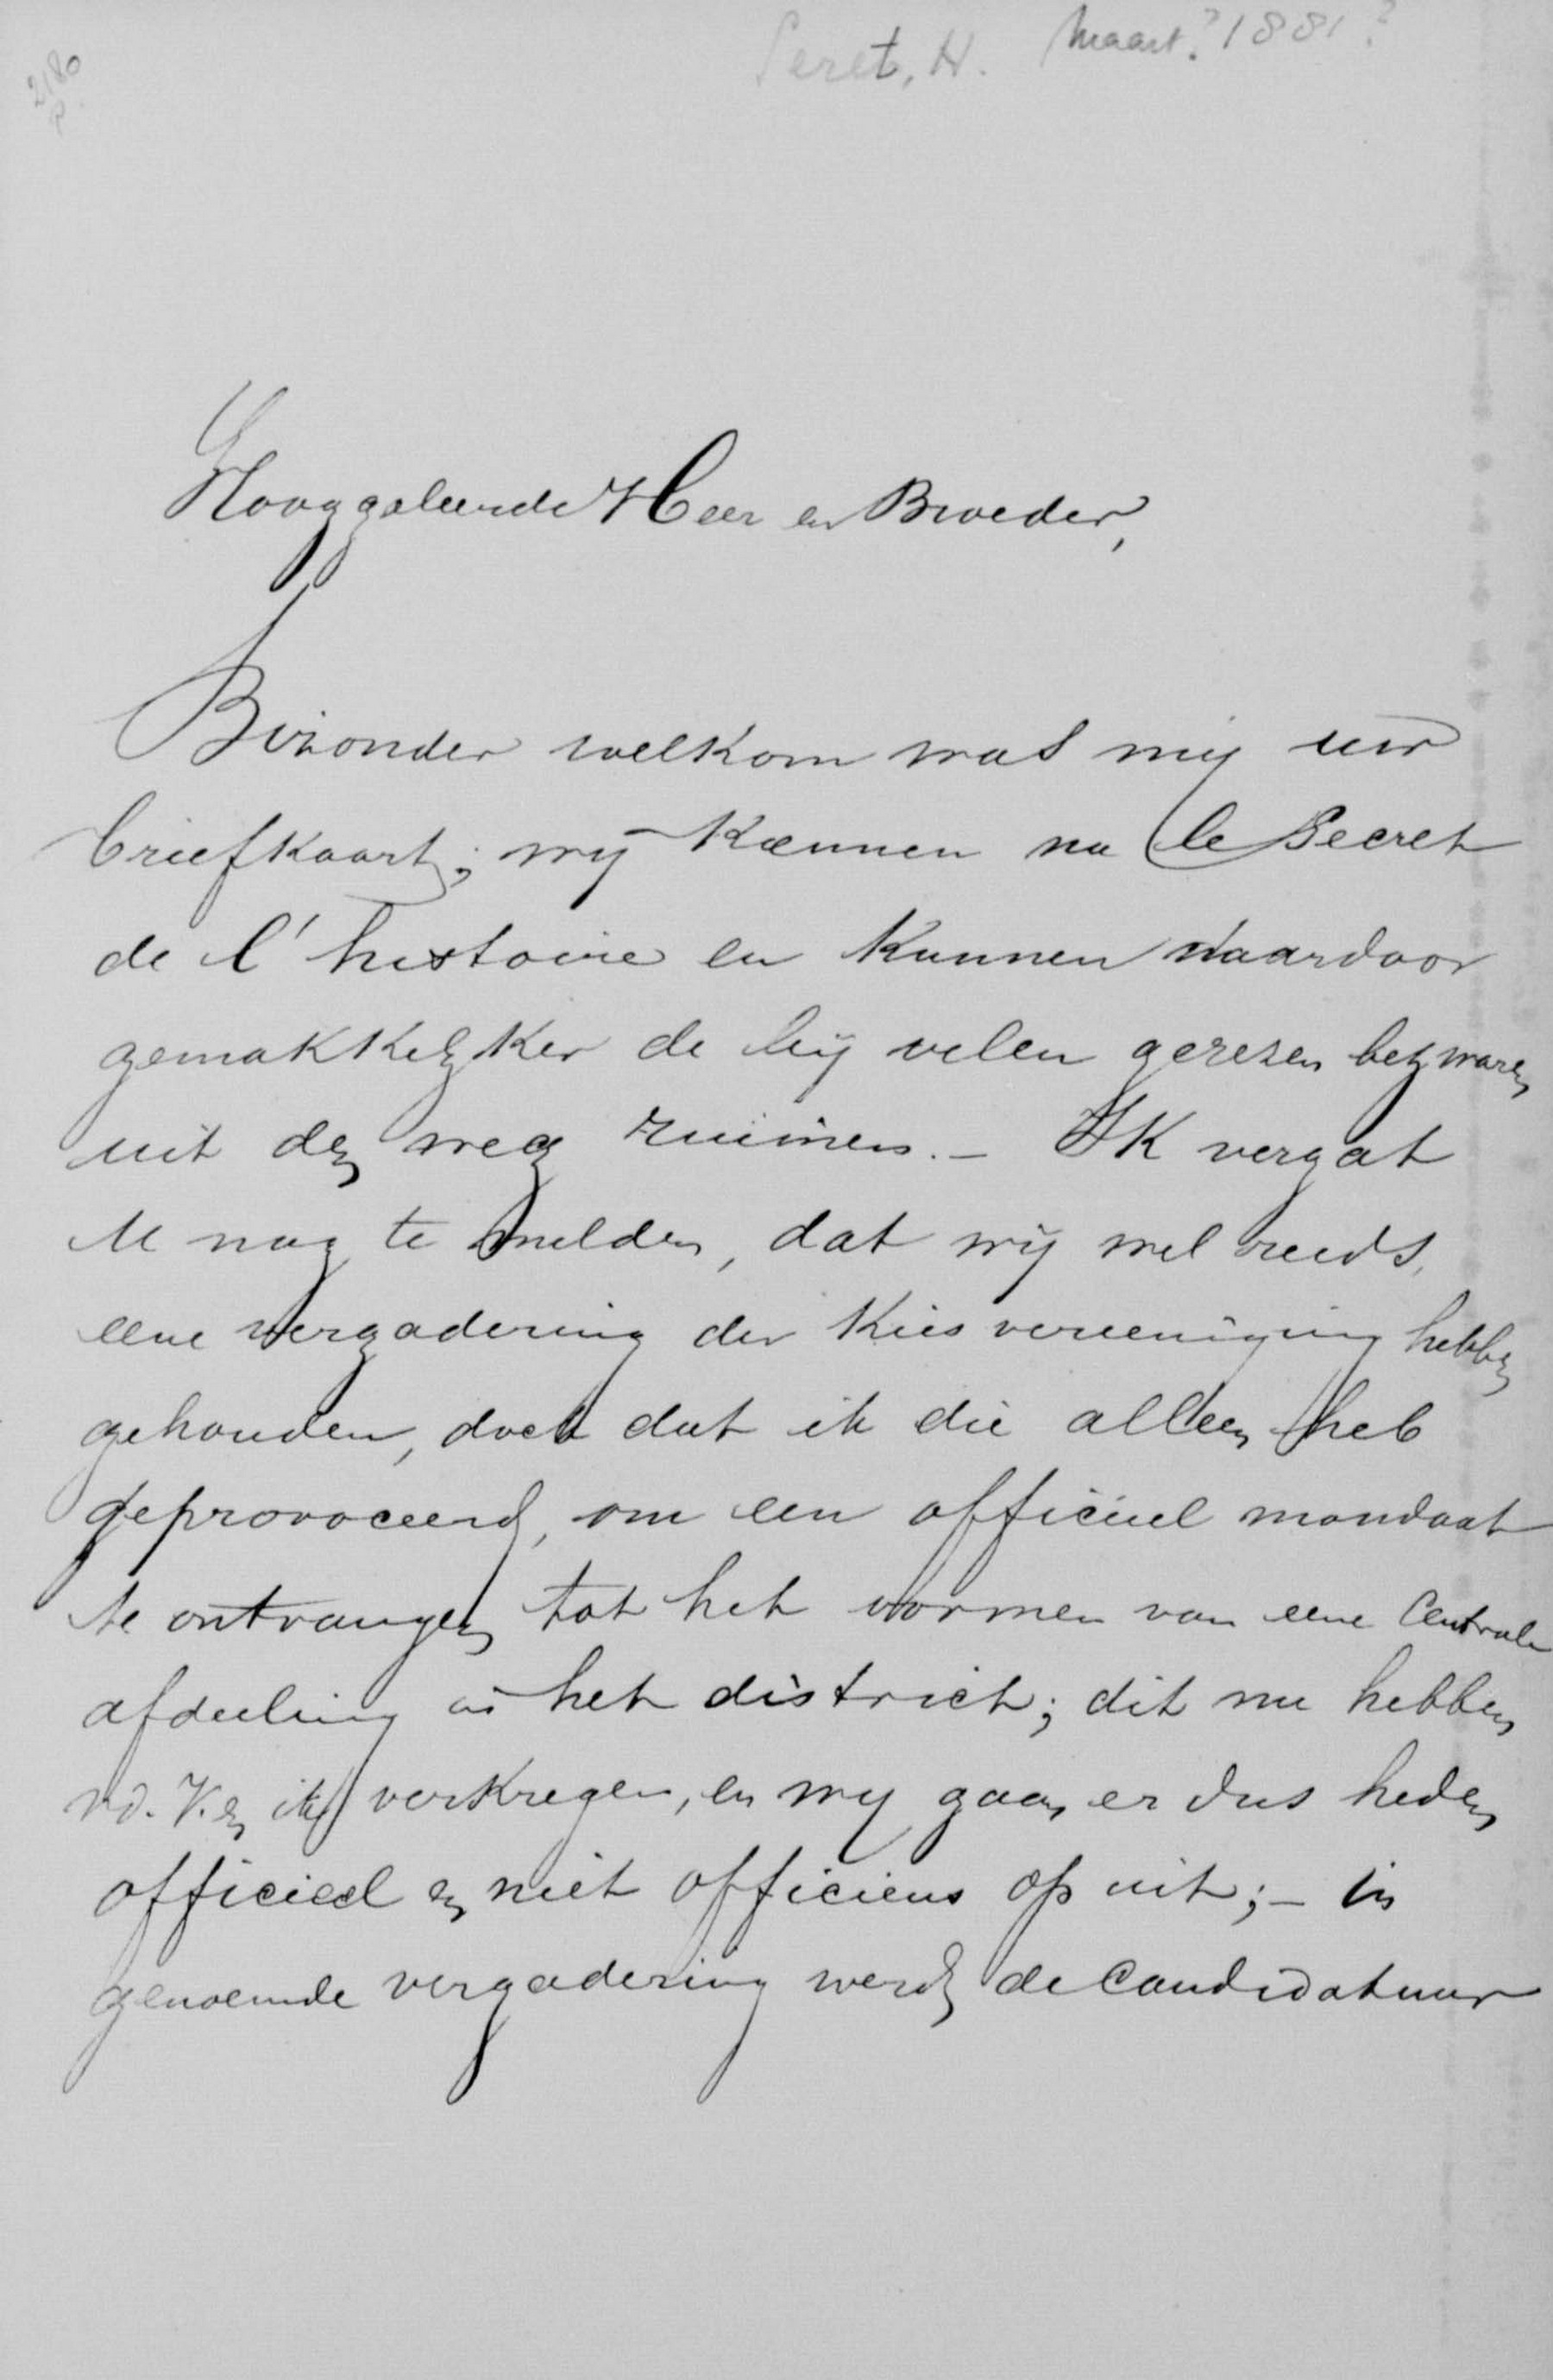 Seret, H. Maart? 1881?
2180
P.
Hooggeleerde Heer en Broeder,
Bizonder welkom was mij uw
briefkaart; wij kennen nu le Secret
de l'histoire en kunnen daardoor
gemakkelijker de bij velen gerezen bezwaren
uit den weg ruimen. – Ik vergat
U nog te melden, dat wij wel reeds
eene vergadering der Kiesvereeniging hebben
gehouden, doch dat ik die alleen heb
geprovoceerd, om een officieel mandaat
te ontvangen tot het vormen van eene Centrale
afdeeling in het district; dit nu hebben
v.d. V. en ik verkregen, en wij gaan er dus heden
officieel en niet officieus op uit; – in
genoemde vergadering werd de Candidatuur